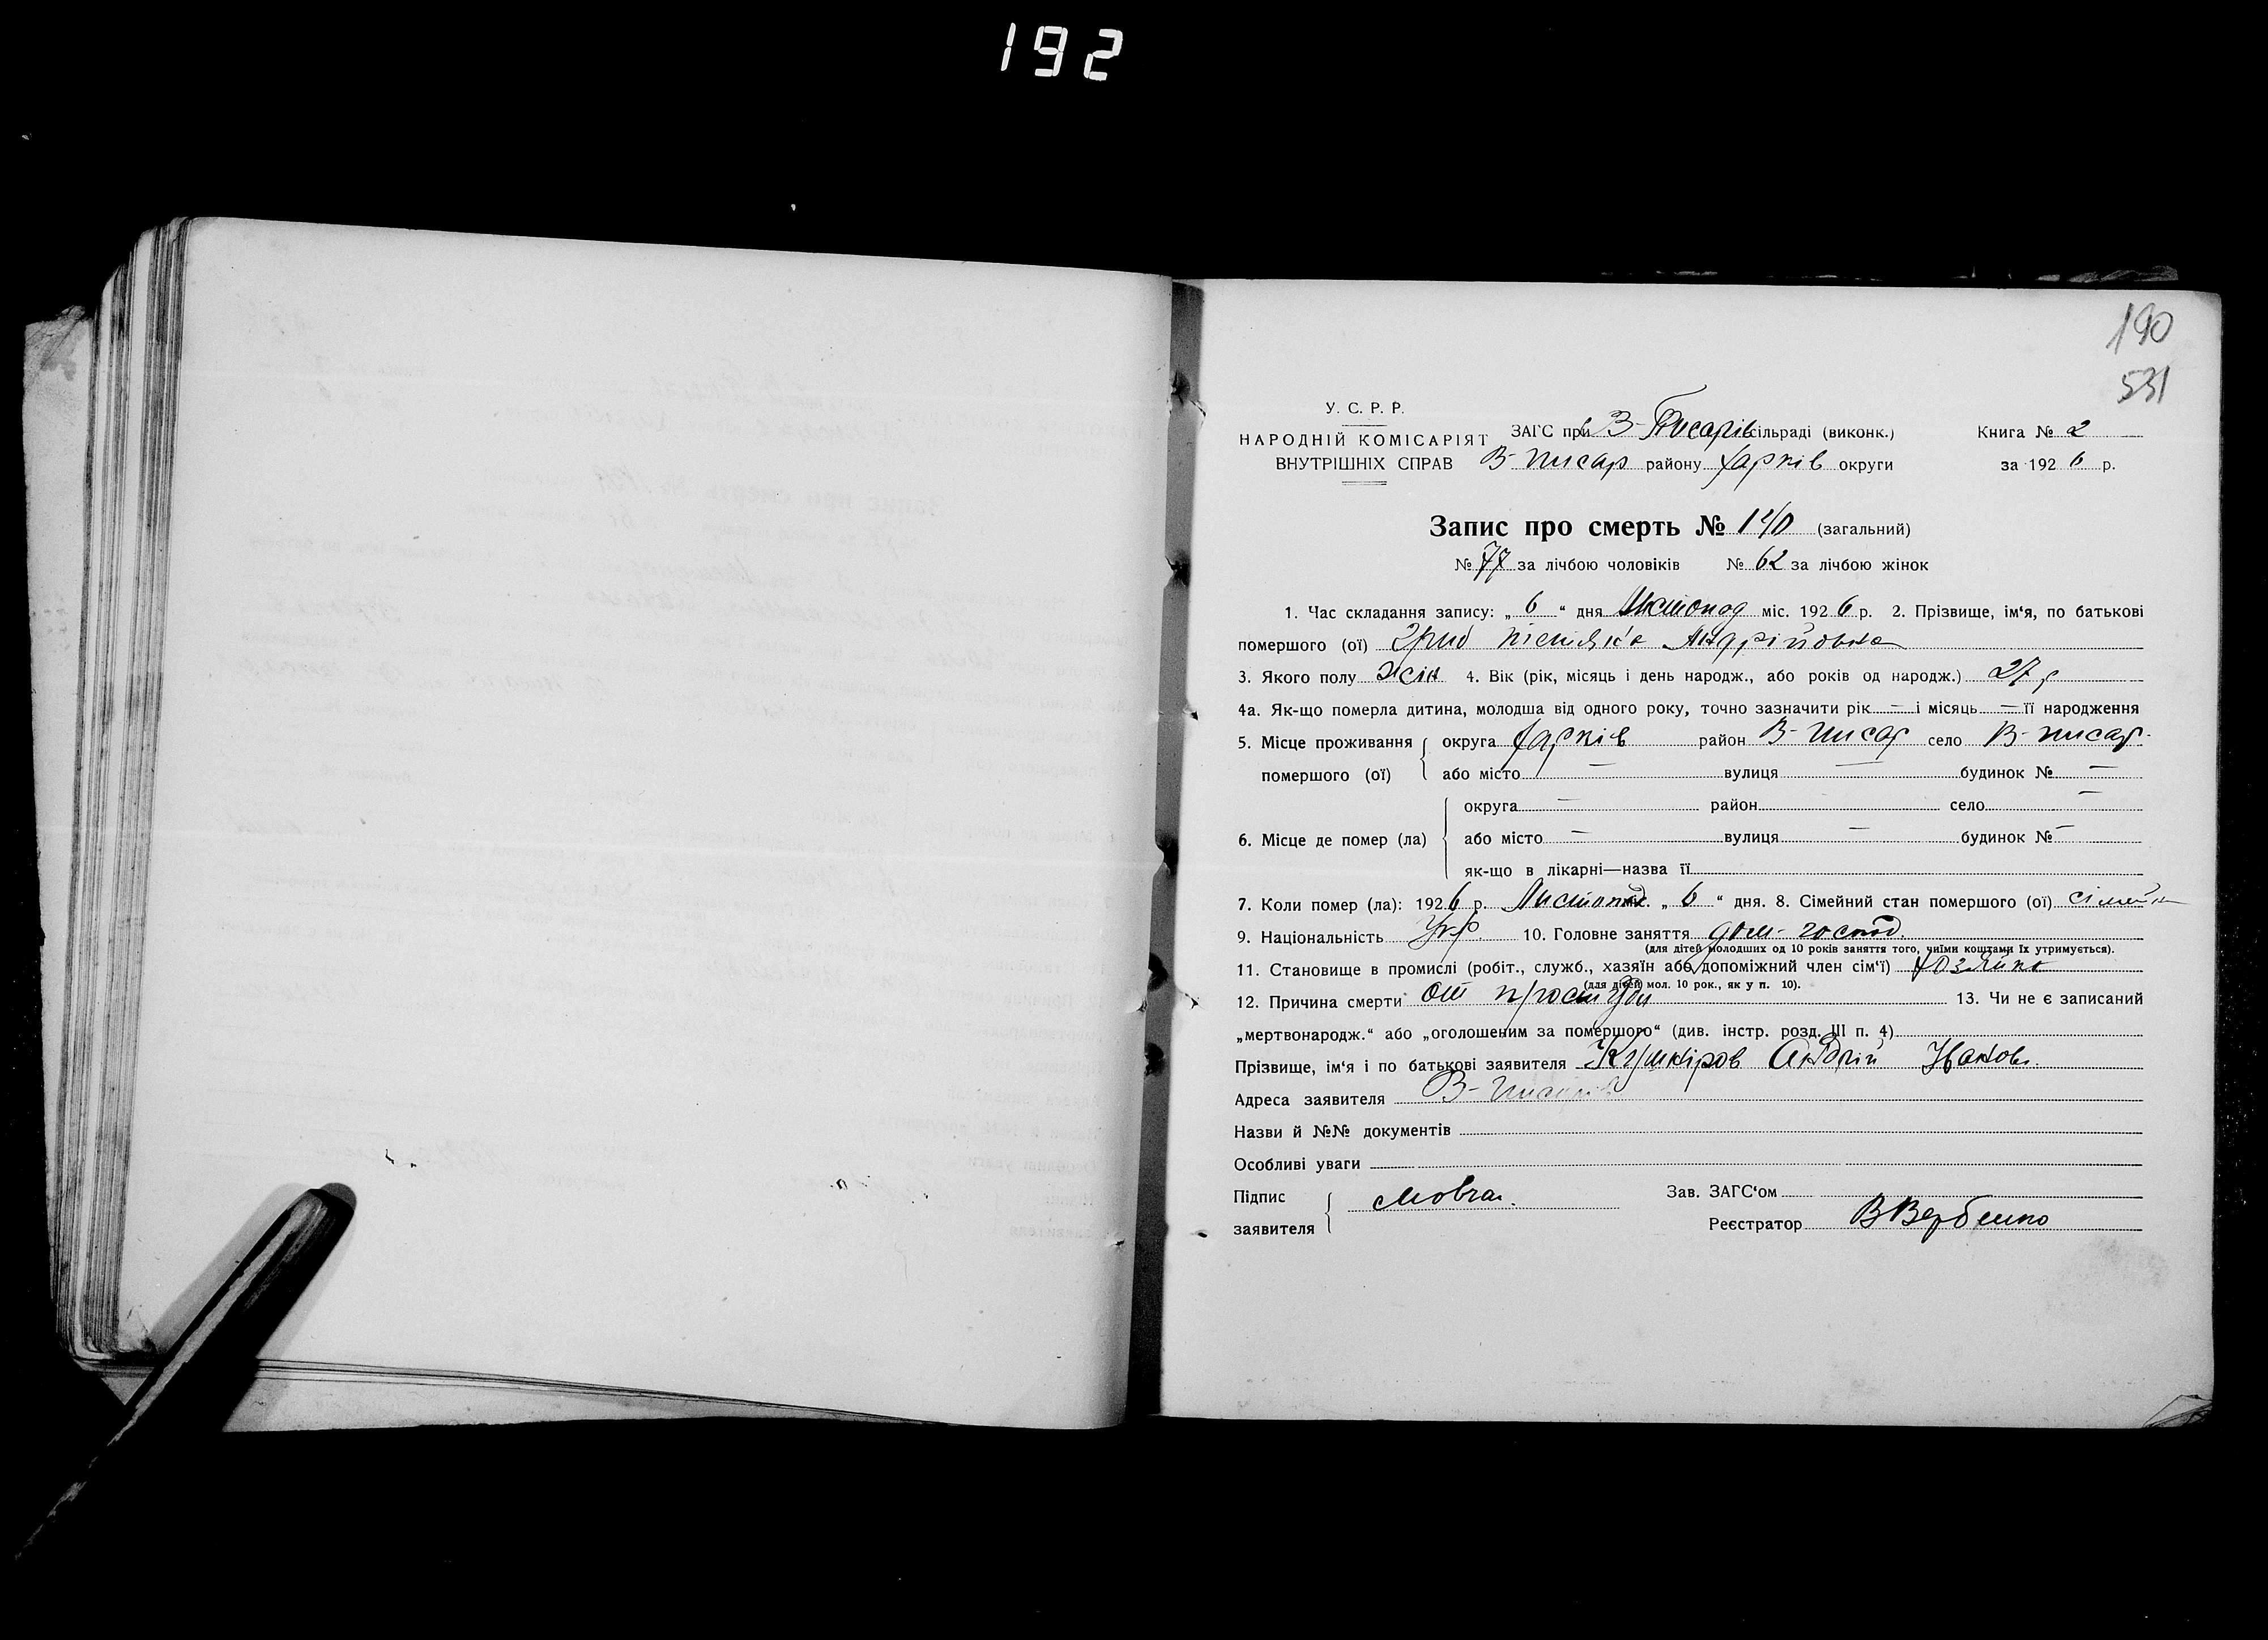 192
190
531
У. С. Р. Р.
НАРОДНІЙ КОМІСАРІЯТ
ВНУТРІШНІХ СПРАВ
ЗАГС при В-Писарів сільраді (виконк.)
В-писар району Харків округи
Книга № 2
за 1926 р.
Запис про смерть № 140 (загальний)
№ 77 за лічбою чоловіків № 62 за лічбою жінок
1. Час складання запису: „ 6 “ дня Листопад міс. 1926 р. 2. Прізвище, ім‘я, по батькові
помершого (ої) Андрійовна
3. Якого полу жін 4. Вік (рік, місяць і день народж., або років од народж.) 27 р
4а. Як-що померла дитина, молодша від одного року, точно зазначити рік — і місяць — її народження
5. Місце проживання помершого (ої) округа Харків район В-писар село В-писар
або місто — вулиця — будинок № —
6. Місце де помер (ла) округа — район село —
або місто — вулиця — будинок № —
як-що в лікарні—назва її
7. Коли помер (ла): 1926 р. Листопад „ 6 “ дня. 8. Сімейний стан помершого (ої)
9. Національність Укр. 10. Головне заняття дом-господ.
(для дітей молодших од 10 років заняття того, чиїми коштами їх утримується).
11. Становище в промислі (робіт., служб., хазяїн або допоміжний член сім‘ї) хозяйка
(для дітей мол. 10 рок., як у п. 10).
12. Причина смерти от простуди 13. Чи не є записаний
„мертвонародж.“ або „оголошеним за помершого“ (див. інстр. розд. III п. 4)
Прізвище, ім‘я і по батькові заявителя Кушніров Андрій Іванов.
Адреса заявителя В-Писарів
Назви й №№ документів
Особливі уваги
Підпис заявителя Мовчан
Зав. ЗАГС‘ом
Реєстратор ВВербенко